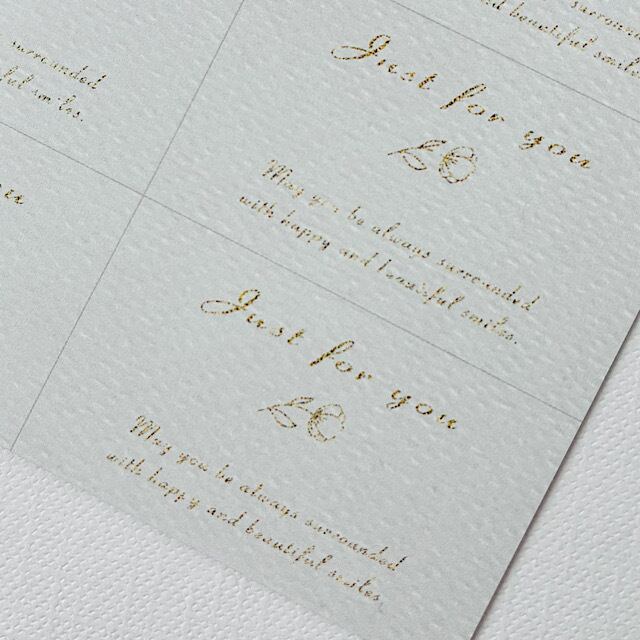 surrounded
and beautiful smiles.
surrounded
smiles.
you
Just for you
May you be always surrounded
with happy and beautiful smiles.
Just for you
May you be always surrounded
with happy and beautiful smiles.